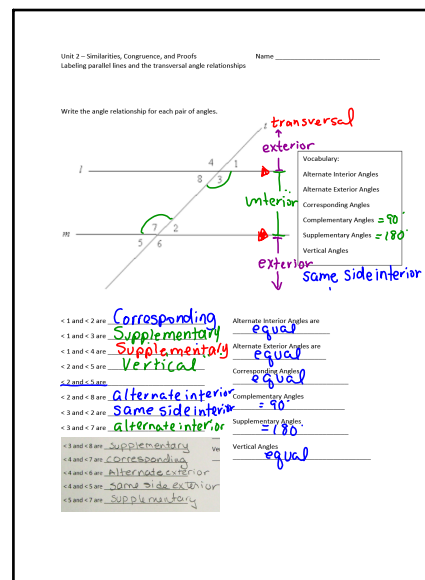 Unit 2 – Similarities, Congruence, and Proofs Name
Labeling parallel lines and the transversal angle relationships
Write the angle relationship for each pair of angles.
t transversal
exterior
4 1
l 8 3
interior
7 2
m 5 6
exterior
Vocabulary:
Alternate Interior Angles
Alternate Exterior Angles
Corresponding Angles
Complementary Angles = 90°
Supplementary Angles = 180°
Vertical Angles
same side interior
< 1 and < 2 are Corresponding
< 1 and < 3 are Supplementary
< 1 and < 4 are Supplementary
< 2 and < 5 are Vertical
< 2 and < 5 are
< 2 and < 8 are alternate interior
< 3 and < 2 are same side interior
< 3 and < 7 are alternate interior
< 3 and < 8 are supplementary
< 4 and < 7 are corresponding
< 4 and < 6 are Alternate exterior
< 4 and < 5 are same side exterior
< 5 and < 7 are supplementary
Ve
Alternate Interior Angles are
equal
Alternate Exterior Angles are
equal
Corresponding Angles
equal
Complementary Angles
= 90°
Supplementary Angles
= 180°
Vertical Angles
equal